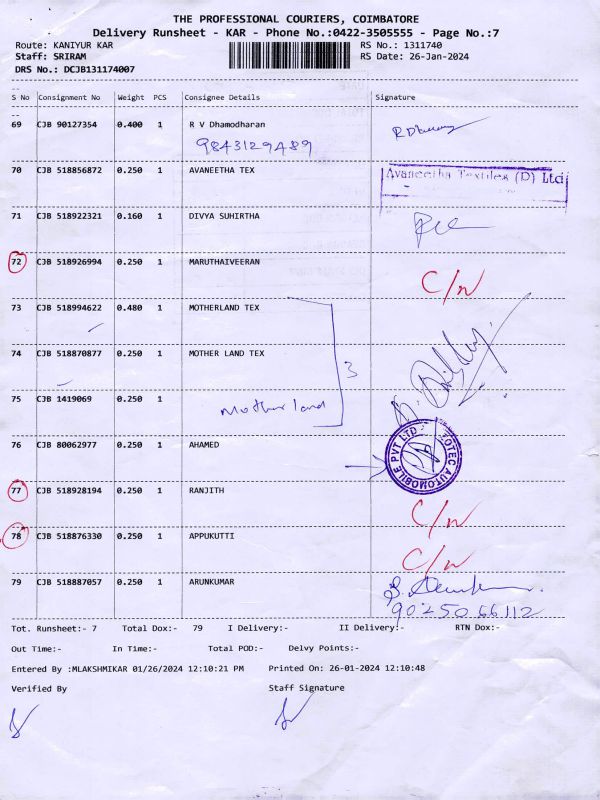 THE PROFESSIONAL COURIERS, COIMBATORE
Delivery Runsheet - KAR - Phone No.:0422-3505555 - Page No.:7
Route: KANIYUR KAR RS No.: 1311740
Staff: SRIRAM RS Date: 26-Jan-2024
DRS No.: DCJB131174007
S No Consignment No Weight PCS Consignee Details Signature
69 CJB 90127354 0.400 1 R V Dhamodharan
9843129489
70 CJB 518856872 0.250 1 AVANEETHA TEX Avaneetha Textiles (D) Ltd
71 CJB 518922321 0.160 1 DIVYA SUHIRTHA
72 CJB 518926994 0.250 1 MARUTHAIVEERAN C/N
73 CJB 518994622 0.480 1 MOTHERLAND TEX
74 CJB 518870877 0.250 1 MOTHER LAND TEX 3
75 CJB 1419069 0.250 1 Motherland
76 CJB 80062977 0.250 1 AHAMED ZOTEC AUTOMOBILE PVT LTD
77 CJB 518928194 0.250 1 RANJITH C/N
78 CJB 518876330 0.250 1 APPUKUTTI C/N
79 CJB 518887057 0.250 1 ARUNKUMAR
90250 66112
Tot. Runsheet:- 7 Total Dox:- 79 I Delivery:- II Delivery:- RTN Dox:-
Out Time:- In Time:- Total POD:- Delvy Points:-
Entered By :MLAKSHMIKAR 01/26/2024 12:10:21 PM Printed On: 26-01-2024 12:10:48
Verified By Staff Signature